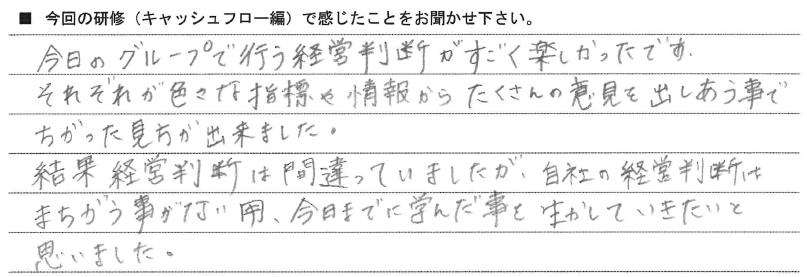 ■ 今回の研修（キャッシュフロー編）で感じたことをお聞かせ下さい。
今日のグループで行う経営判断がすごく楽しかったです.
それぞれが色々な指標や情報からたくさんの意見を出しあう事で
ちがった見方が出来ました。
結果経営判断は間違っていましたが、自社の経営判断は
まちがう事がない用、今日までに学んだ事を生かしていきたいと
思いました。